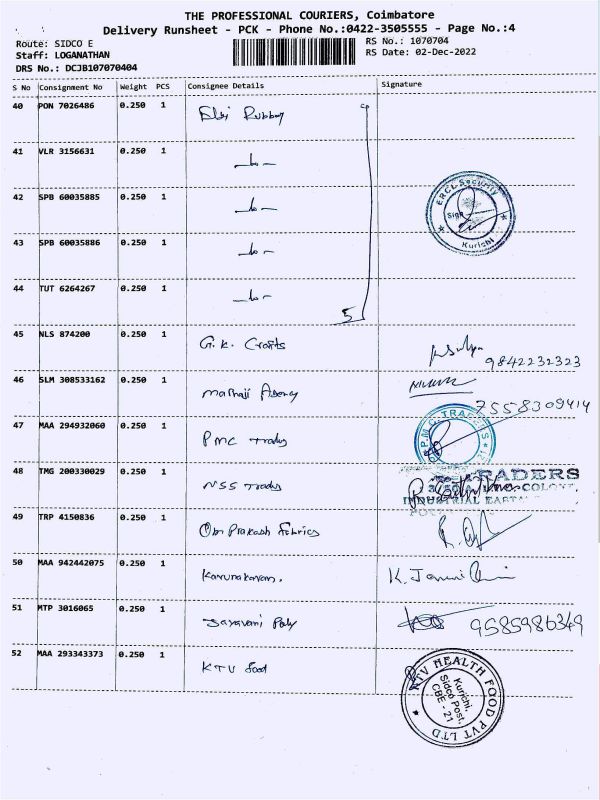 THE PROFESSIONAL COURIERS, Coimbatore
Delivery Runsheet - PCK - Phone No.:0422-3505555 - Page No.:4
Route: SIDCO E
RS No.: 1070704
Staff: LOGANATHAN
RS Date: 02-Dec-2022
DRS No.: DCJB107070404
S No Consignment No Weight PCS Consignee Details Signature
40 PON 7026486 0.250 1 Elbi Rubber
41 VLR 3156631 0.250 1
42 SPB 60035885 0.250 1
ERCL Security
Sign
Kurichi
43 SPB 60035886 0.250 1
44 TUT 6264267 0.250 1
5
45 NLS 874200 0.250 1 G.K. Crafts
9842232323
46 SLM 308533162 0.250 1 Agency
7558309414
47 MAA 294932060 0.250 1 PMC Trades
P.M.C. TRADERS
48 TMG 200330029 0.250 1 NSS Trades
TRADERS
COLONY,
INDUSTRIAL ESTATE
49 TRP 4150836 0.250 1 Om Prakash Fabrics
50 MAA 942442075 0.250 1 Karunakaran.
K.
51 MTP 3016065 0.250 1 Poly
9585986349
52 MAA 293343373 0.250 1 KTV food
KTV HEALTH FOOD PVT LTD
Kurichi,
Sidco Post,
CBE - 21